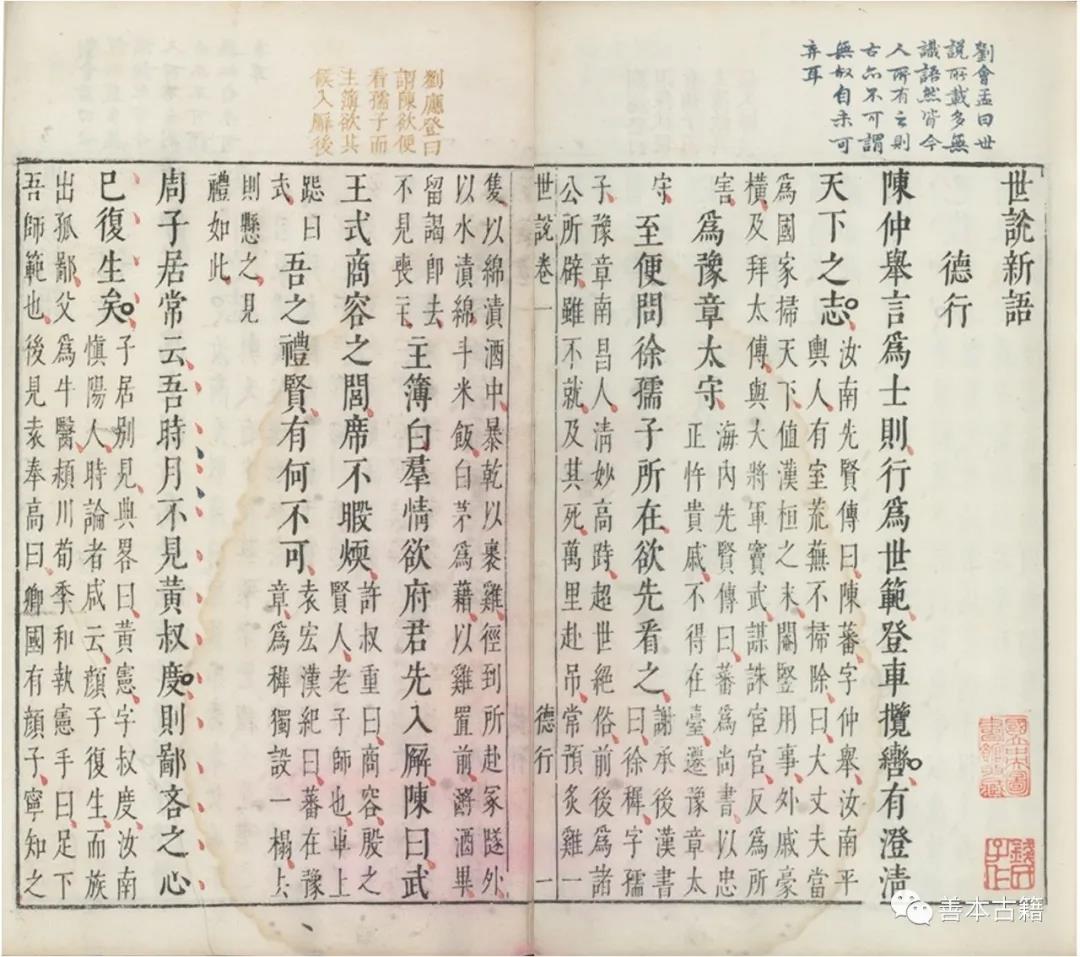 劉會孟曰世
說所載多無
識語然皆今
人所有之則
古亦不可謂
無奴自未可
弃耳
世說新語
德行
陳仲舉言爲士則行爲世範登車攬轡有澄清
天下之志
汝南先賢傳曰陳蕃字仲舉汝南平
輿人有室荒蕪不掃除曰大丈夫當
爲國家掃天下值漢桓之末閹豎用事外戚豪
橫及拜太傅與大將軍竇武謀誅宦官反爲所
害
爲豫章太守
海內先賢傳曰蕃爲尚書以忠
正忤貴戚不得在臺遷豫章太
守
至便問徐孺子所在欲先看之
謝承後漢書
曰徐穉字孺
子豫章南昌人清妙高跱超世絕俗前後爲諸
公所辟雖不就及其死萬里赴吊常預炙雞一
世說卷一 德行 一
劉應登曰
謂陳欲便
看孺子而
主簿欲其
候入廨後
隻以綿漬酒中暴乾以裹雞徑到所赴冢隧外
以水漬綿斗米飯白茅爲藉以雞置前酹酒畢
留謁即去
不見喪主
主簿白羣情欲府君先入廨陳曰武
王式商容之閭席不暇煖
許叔重曰商容殷之
賢人老子師也車上
跽曰
式
吾之禮賢有何不可
袁宏漢紀曰蕃在豫
章爲穉獨設一榻去
則懸之見
禮如此
周子居常云吾時月不見黃叔度則鄙吝之心
已復生矣
子居別見典畧曰黃憲字叔度汝南
慎陽人時論者咸云顏子復生而族
出孤鄙父爲牛醫潁川荀季和執憲手曰足下
吾師範也後見袁奉高曰卿國有顏子寧知之
善本古籍